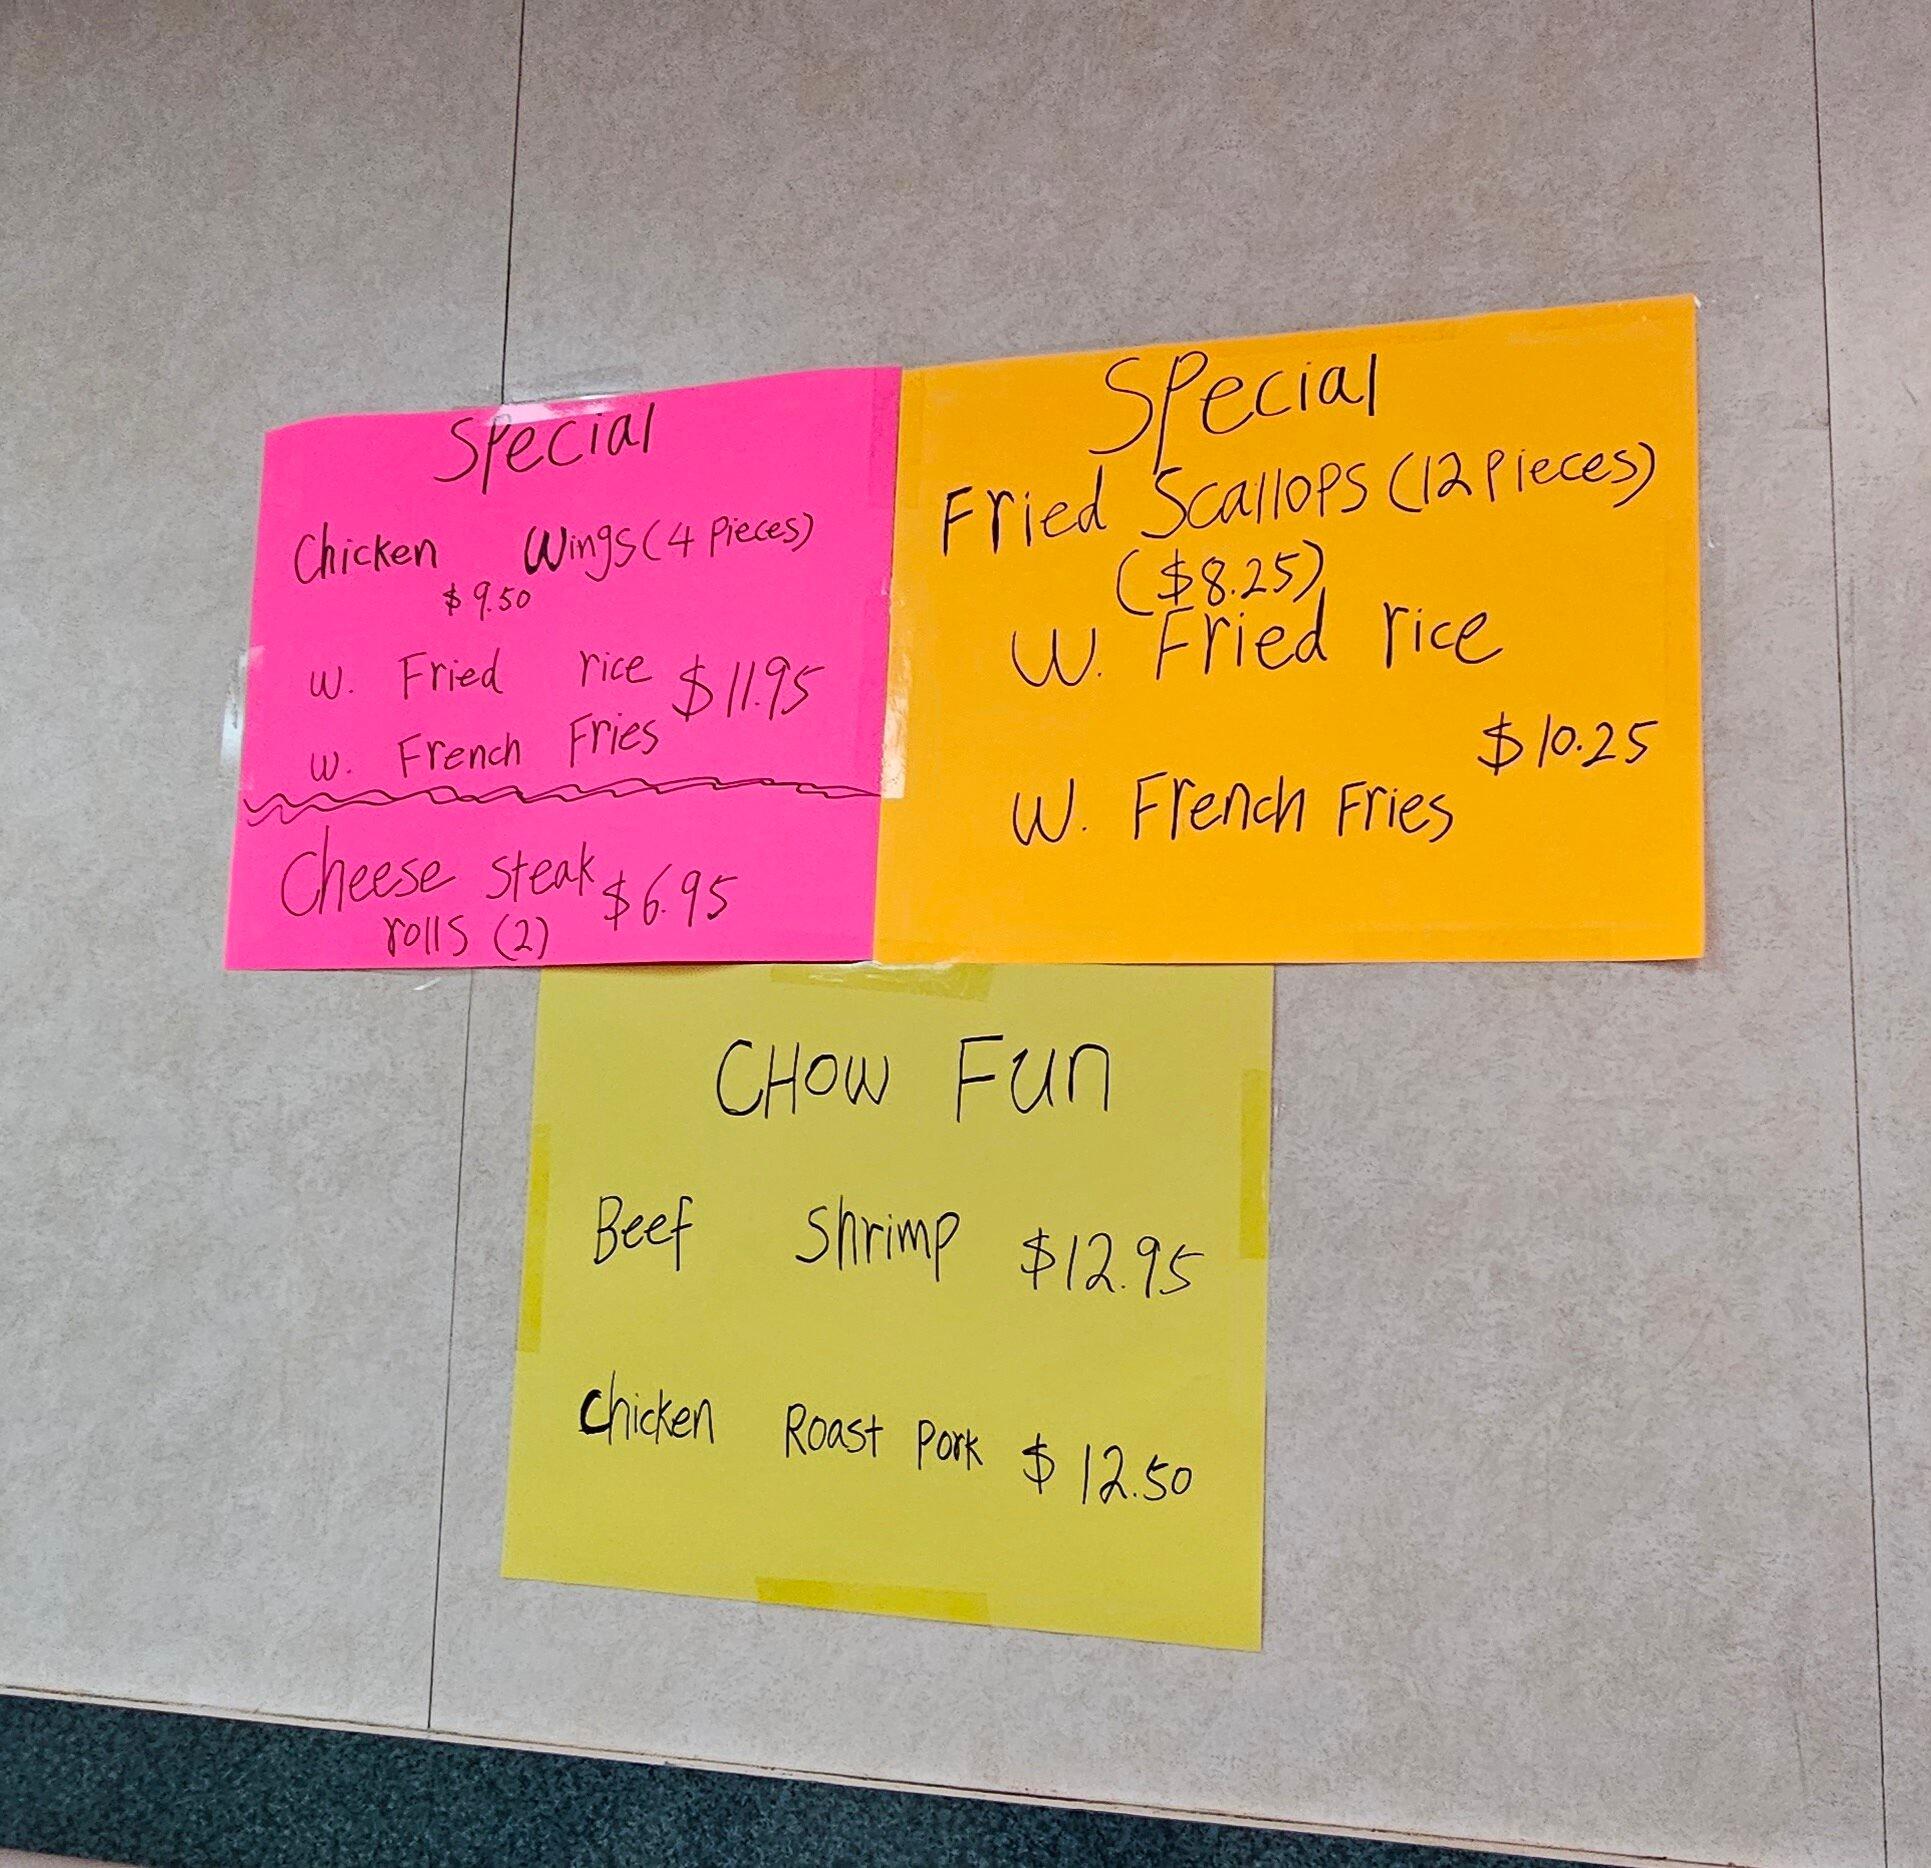 Special
Chicken Wings (4 Pieces)
$9.50
W. Fried rice
$11.95
W. French Fries
Cheese steak
$6.95
rolls (2)
Special
Fried Scallops (12 Pieces)
($8.25)
W. Fried rice
$10.25
W. French Fries
CHOW Fun
Beef Shrimp $12.95
Chicken Roast Pork $12.50